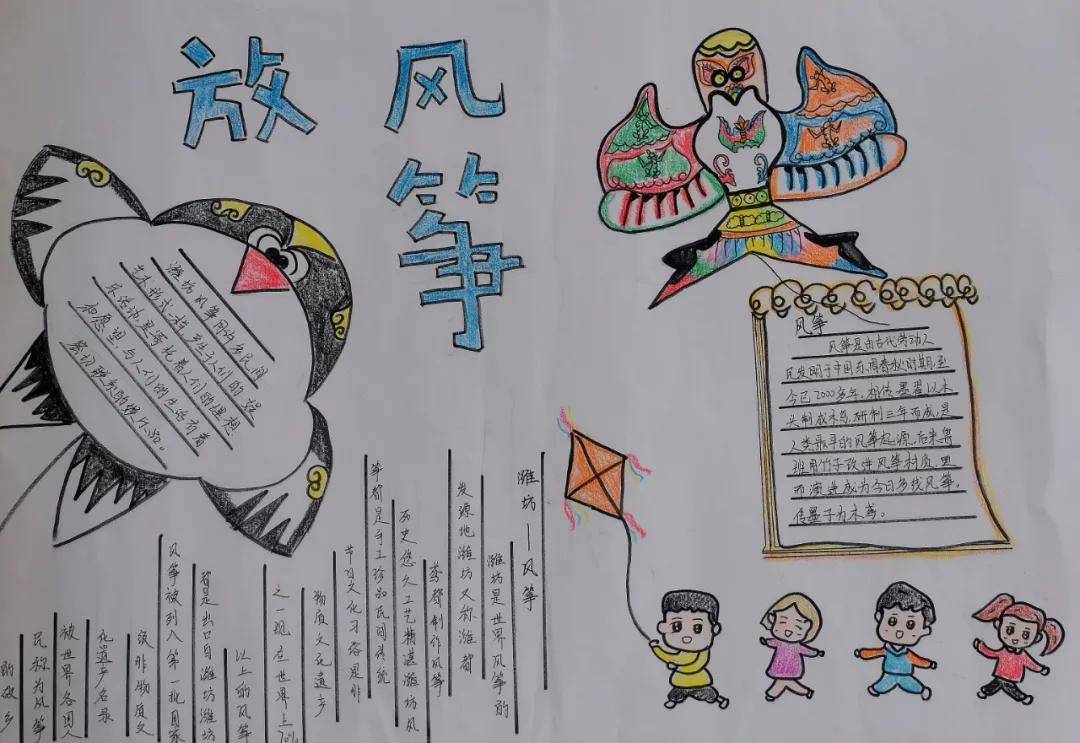 放风
筝
潍坊风筝同许多民间
艺术形式一样,产生于人们的娱
乐活动,是寄托着人们的理想
和愿望,与人们的生活有着
密切联系的娱乐品。
风筝
风筝是由古代劳动人
民发明于中国东周春秋时期,至
今已2000多年。相传墨翟以木
头制成木鸟,研制三年而成,是
人类最早的风筝起源。后来鲁
班用竹子改进风筝材质,
而演进成为今日多线风筝。
传墨子为木鸢。
潍坊——风筝
潍坊是世界风筝的
发源地潍坊又称潍都
鸢都制作风筝
历史悠久工艺精湛潍坊风
筝都是手工珍品民间传统
节日文化习俗是非
物质文化遗产
之一现在世界上70%
以上的风筝
都是出口自潍坊潍坊
风筝被列入第一批国家
级非物质文
化遗产名录
被世界各国人
民称为风筝
的故乡